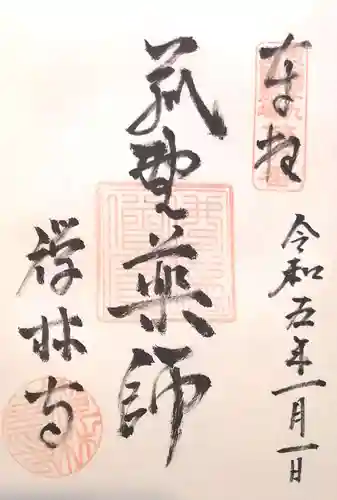 奉拝
令和五年一月一日
孤野薬師
禅林寺